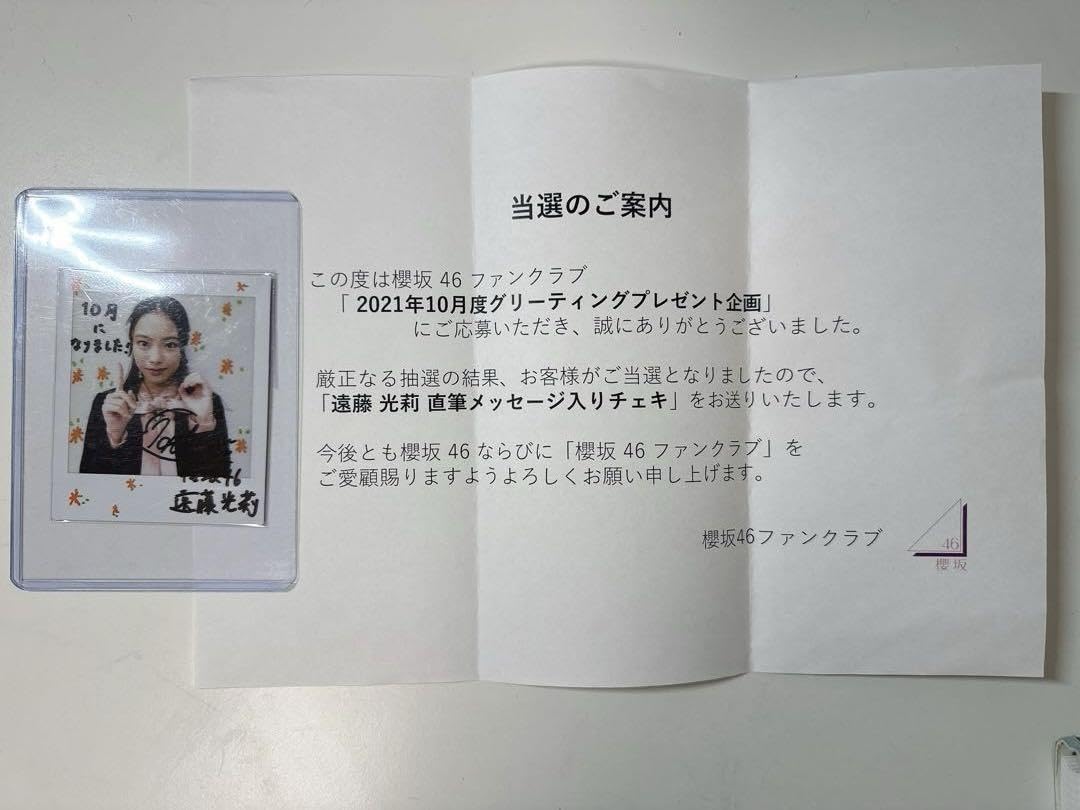 当選のご案内
この度は櫻坂 46 ファンクラブ
「 2021年10月度グリーティングプレゼント企画」
にご応募いただき、誠にありがとうございました。
厳正なる抽選の結果、お客様がご当選となりましたので、
「遠藤 光莉 直筆メッセージ入りチェキ」をお送りいたします。
今後とも櫻坂 46 ならびに「櫻坂 46 ファンクラブ」を
ご愛顧賜りますようよろしくお願い申し上げます。
櫻坂46ファンクラブ
46
櫻坂
10月
に
なりました!
櫻坂46
遠藤光莉